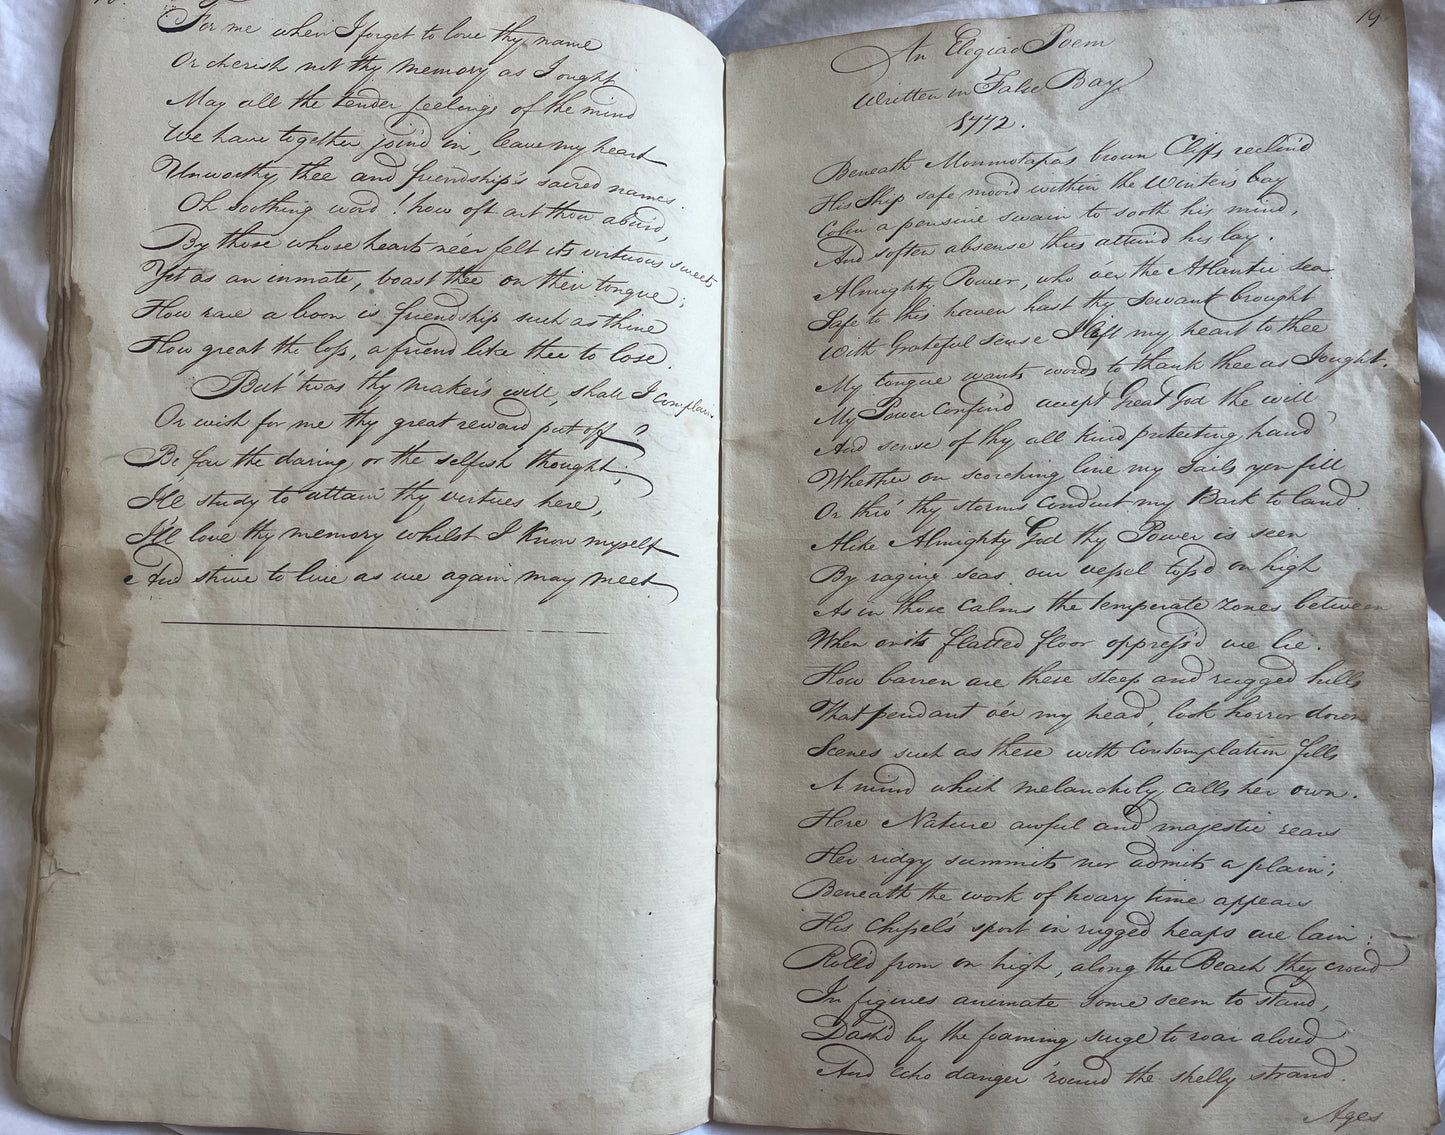 For me when I forget to love thy name
Or cherish not thy memory as I ought
May all the tender feelings of the mind
We have together join'd in, leave my heart
Unworthy thee and friendship's sacred names.
Oh soothing word! how oft art thou abus'd,
By those whose hearts ne'er felt its virtuous sweets
Yet as an inmate, boast thee on their tongue;
How rare a boon is friendship such as thine
How great the loss, a friend like thee to lose.
But 'twas thy maker's will, shall I complain
Or wish for me thy great reward put off?
Be far the daring, or the selfish thought;
I'll study to attain thy virtues here,
I'll love thy memory whilst I know myself
And strive to live as we again may meet.
19.
An Elegiac Poem
Written in False Bay.
1772.
Beneath Monmotapa's brown Cliffs reclin'd
His Ship safe moor'd within the Winter's bay
Colin a pensive swain to sooth his mind,
And soften absense thus attun'd his lay.
Almighty Power, who o'er the Atlantic sea
Safe to this haven hast thy servant brought
With Grateful sense I lift my heart to thee
My tongue wants words to thank thee as I ought.
My Power confin'd accept Great God the will
And sense of thy all kind protecting hand
Whether on scorching line my sails you fill
Or thro' thy storms conduct my Back to land.
Alike Almighty God thy Power is seen
By raging seas our vessel toss'd on high
As in those Calms the temperate zones between
When on its flatted floor oppress'd we lie.
How barren are these steep and rugged hills
That pendant o'er my head, look horror down
Scenes such as these with contemplation fills
A mind which melancholy calls her own.
Here Nature awful and majestic rears
Her ridgy summits nor admits a plain;
Beneath the work of hoary time appears
His chissel's sport in rugged heaps are lain:
Roll'd from on high, along the Beach they crowd
In figures animate some seem to stand,
Dash'd by the foaming surge to roar aloud
And echo danger 'round the shelly strand.
Ages